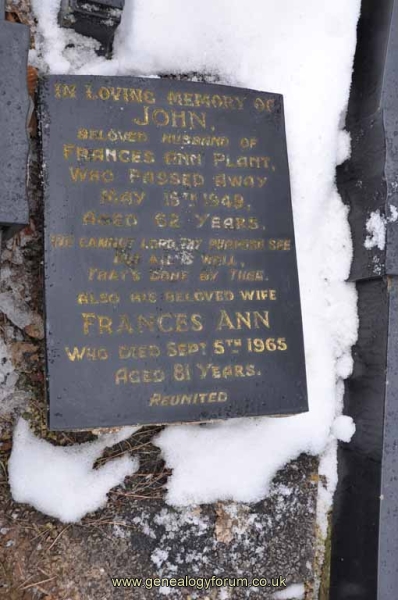 IN LOVING MEMORY OF
JOHN,
BELOVED HUSBAND OF
FRANCES ANN PLANT,
WHO PASSED AWAY
MAY 15TH 1949,
AGED 62 YEARS.
WE CANNOT LORD, THY PURPOSE SEE
BUT ALL IS WELL,
THAT'S DONE BY THEE.
ALSO HIS BELOVED WIFE
FRANCES ANN
WHO DIED SEPT 5TH 1965
AGED 81 YEARS.
REUNITED
www.genealogyforum.co.uk